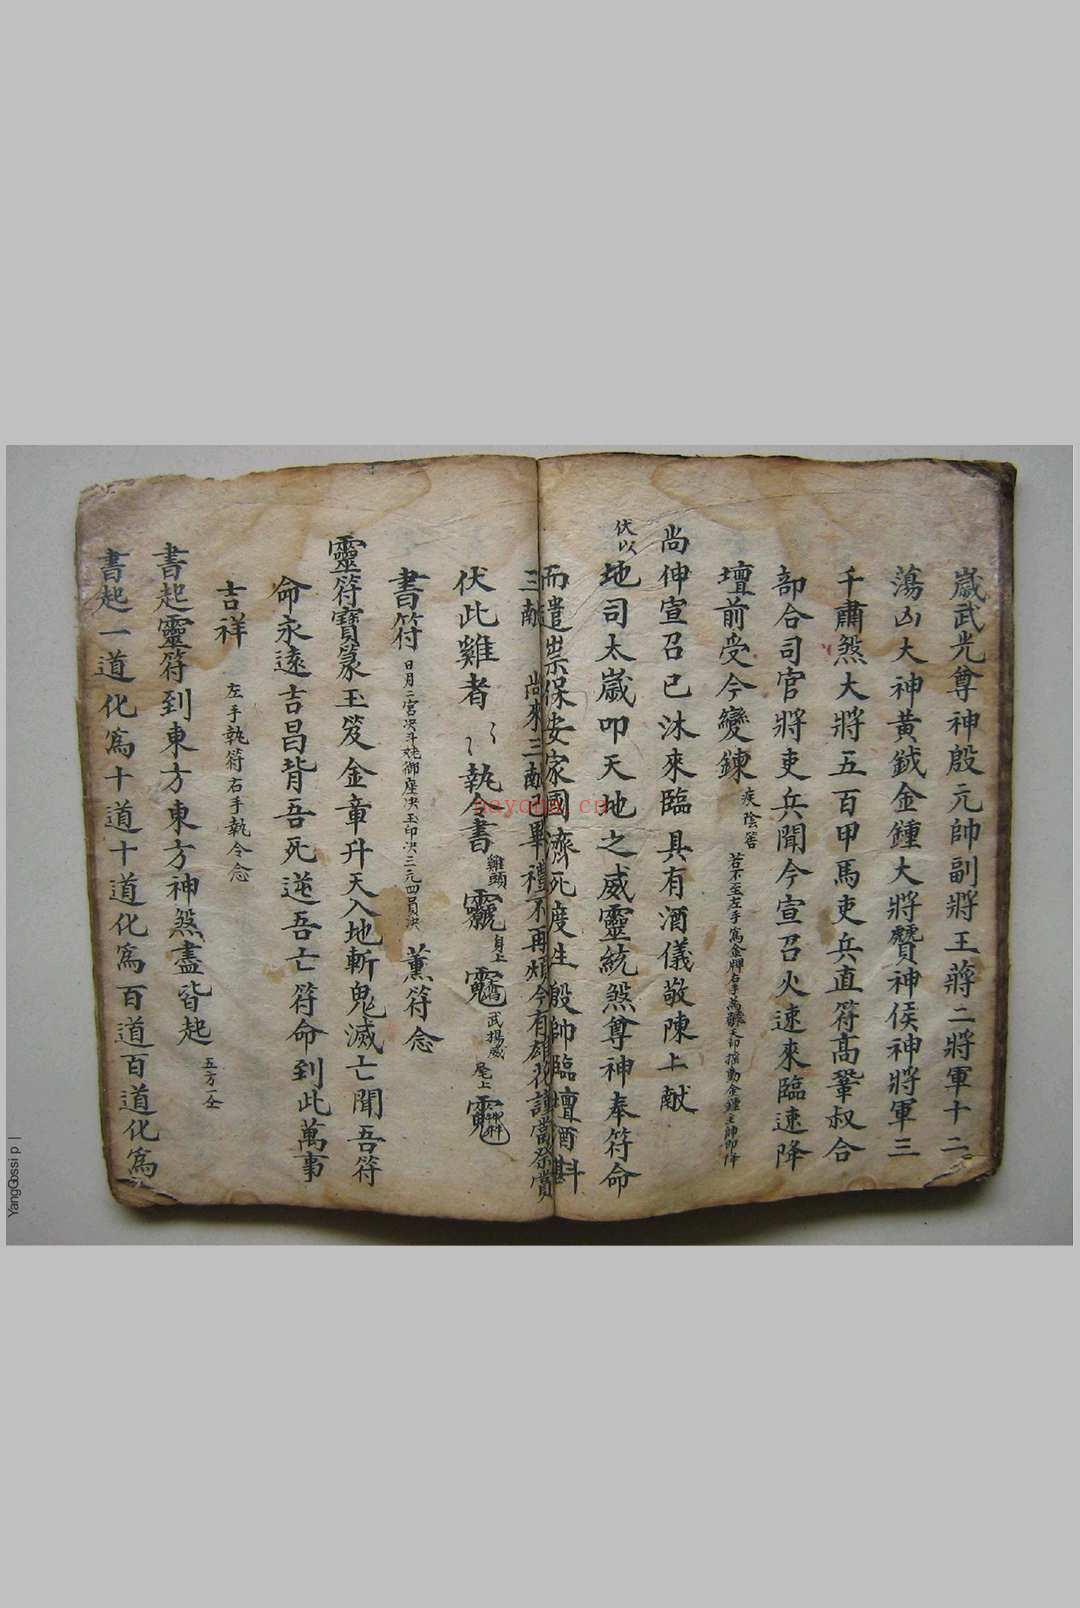 歲武光尊神殷元帥副將王蔣二將軍十二
蕩凶大神黃鉞金鍾大將贊神侯神將軍三
千肅煞大將五百甲馬吏兵直符高鞏叔合
部合司官將吏兵聞今宣召火速來臨速降
壇前受今變鍊 若不至左手寫金牌右手
尚伸宣召已沐來臨具有酒儀敬陳上献
伏以地司太歲叩天地之威靈統煞尊神奉符命
而遣祟保安家國濟死度生殷帥臨壇酒斟
三献 尚來三献已畢禮不再煩今有雄花謹當祭賞
伏此雞者 執令書 雞頭 身上 武揚威 尾上
書符 日月二宮決斗姥御座決玉印決三元四員決 薰符念
靈符寶篆玉笈金章升天入地斬鬼滅亡聞吾符
命永遠吉昌背吾死逆吾亡符命到此萬事
吉祥 左手執符右手執令念
書起靈符到東方東方神煞盡皆起 五方一仝
書起一道化為十道十道化為百道百道化為
nayona.cn
YangGossip |